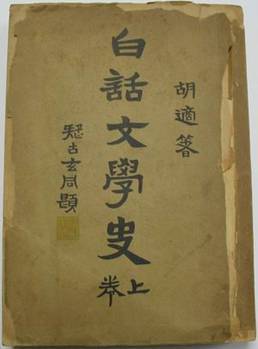 胡適箸
白話文學史
上卷
疑古玄同題